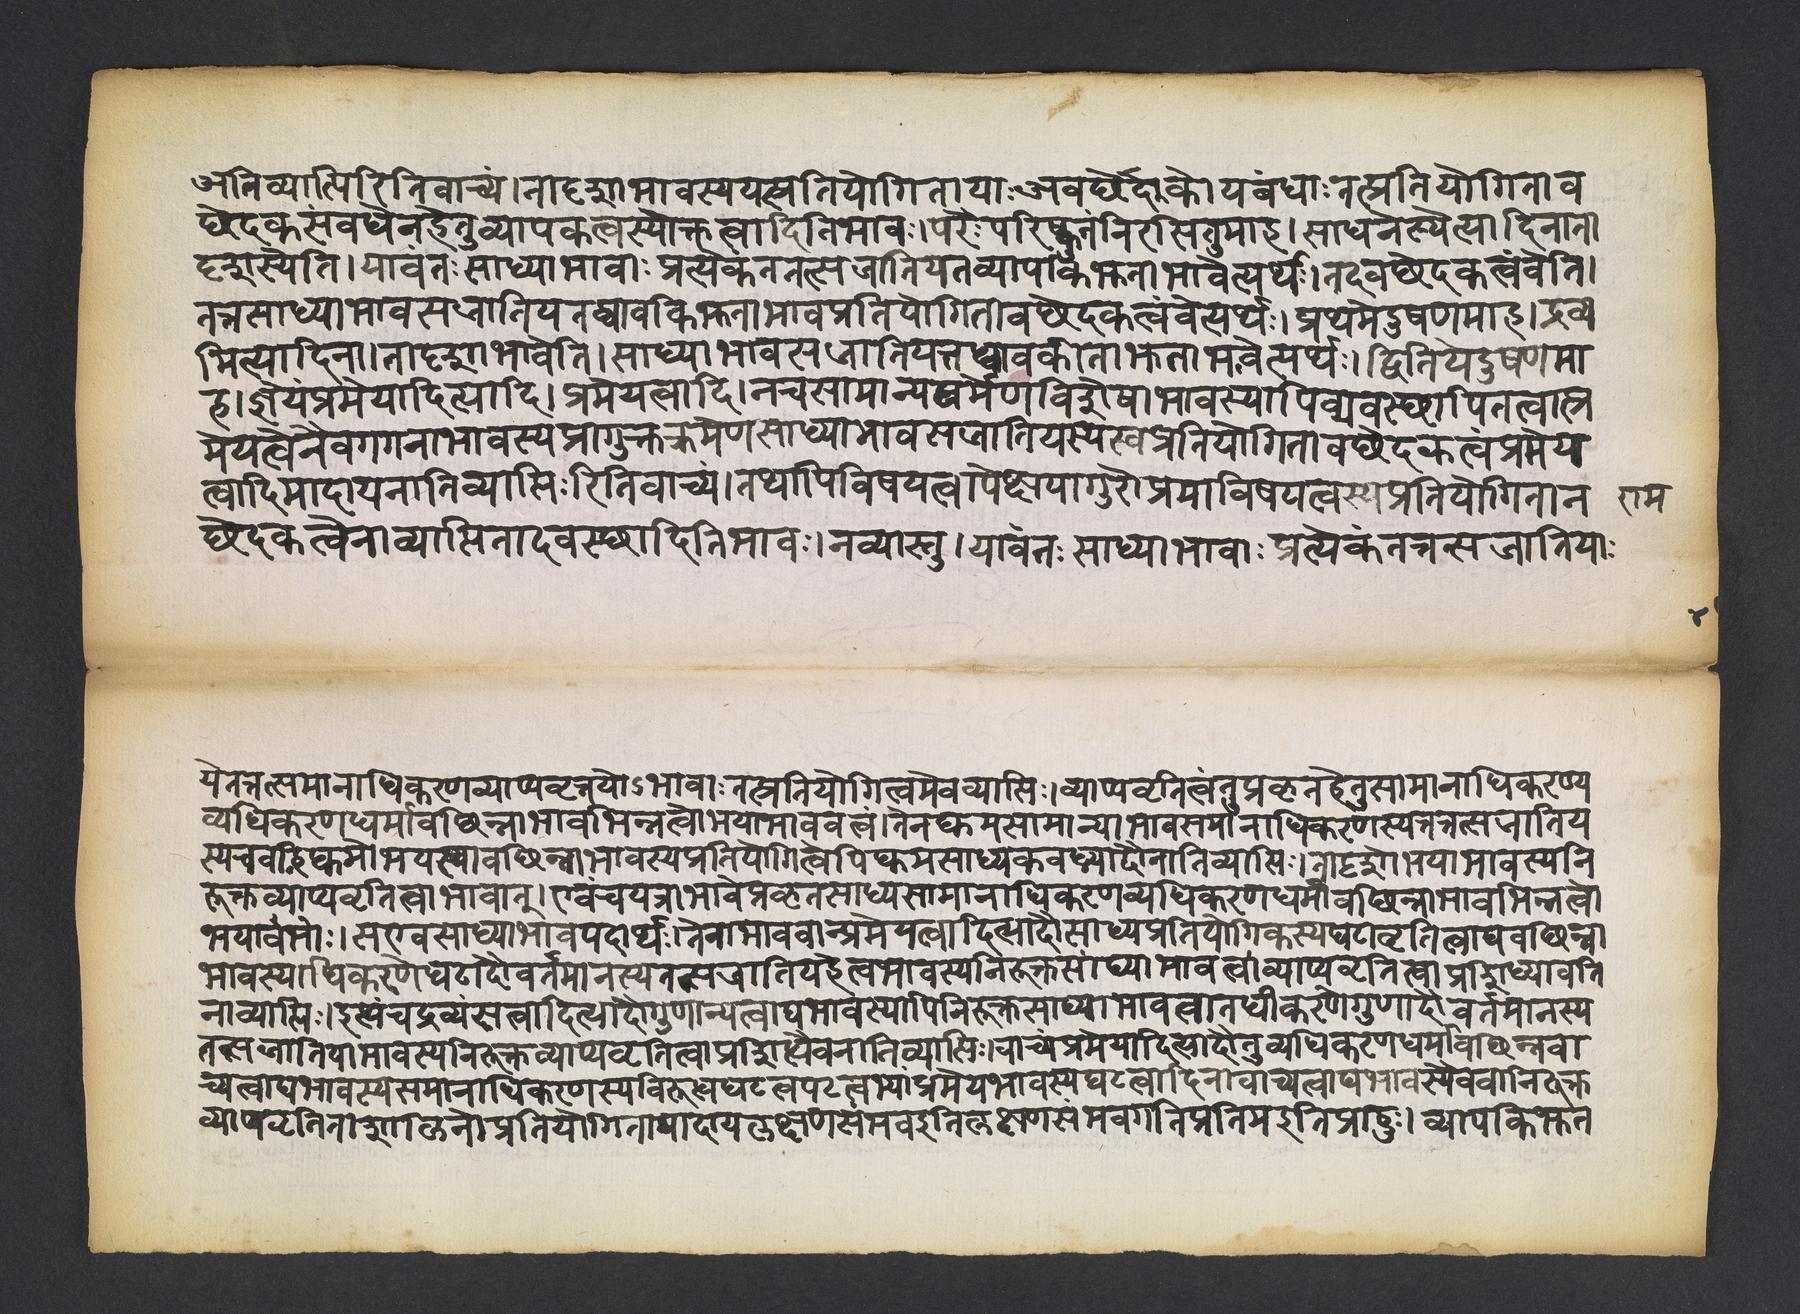 अतिव्याप्तिरितिवाच्यं।तादृशाभावस्ययत्प्रतियोगितायाः अवछेदाकोयबंधाःतत्प्रतियोगिताव
छेदकसंबधेनहेतुव्यापकत्वस्योक्तत्वादितिभावः।परैःपरिष्कृतंनिरसितुमाह।साधनस्येत्यादिनाता
दृशस्येति।यावंतःसाध्याभावाःप्रत्येकंतत्तत्सजातियतव्यापकिभूताभावेत्यर्थः।तदवछेदकत्वंवेति।
तत्तसाध्याभावसजातियतत्द्यावकिभूताभावप्रतियोगितावछेदकत्वंवेत्यर्थः।प्रथमेदुषणमाह।द्रव्य
मित्यादिना।तादृशाभावेति।साध्याभावसजातियत्त भूताभवेत्यर्थः।द्वितियेदुषणमा
ह।ज्ञेयंप्रमेयादित्यादि।प्रमेयत्वादि।नचसामान्यधर्मेणविशेषाभावस्यापिव्यवस्छापितत्वात्प्र
मेयत्वेनैवगगनाभावस्यप्रागुक्तक्रमेणसाध्याभावसजातियस्यस्वप्रतियोगितावछेदकत्वंप्रमेय
त्वादिमादायनातिव्याप्तिःरितिवाच्यं।तथापिविषयत्वापेक्षयागुरोप्रमाविषयत्वस्यप्रतियोगितान राम
छेदकत्वेनाव्याप्तितादवस्छादितिभावः।नव्यास्तु।यावंतःसाध्याभावाःप्रत्येकंतत्तत्सजातियाः
४
येतत्तत्समानाधिकरणव्याप्यवृत्तयोऽभावाःतत्प्रतियोगित्वमेवव्याप्तिः।व्याप्यवृतित्वंतुप्रकृतहेतुसामानाधिकरण्य
व्यधिकरणधर्मावछिन्नाभावभिन्नत्वोभयाभाववत्वं।तेनघ्कमसामान्याभावसमानाधिकरणस्यतत्तत्सजातिय
स्यचवह्निघ्कमोभयत्वावछिन्नाभावस्यप्रतियोगित्वेपिघ्कमसाध्यकवघ्न्यादौनातिव्याप्तिः।तादृशोभयाभावस्यनि
रुक्तव्याप्यवृतित्वाभावात्।एवंचयत्राभावेप्रकृतसाध्यसामानाधिकरणव्यधिकरणधर्मावछिन्नाभावभिन्नत्वो
भयाभावः।सएवसाध्याभावपदार्थः।तेनाभाववान्प्रमेयत्वादित्यादौसाध्यप्रतियोगिकस्यघटावृतित्वाघवछिन्ना
भावस्याधिकरणेघटादौवर्तमानस्यतत्सजातियहेत्वभावस्यनिरुक्तसाध्याभावत्वाव्याप्यवृतित्वाप्रशिध्यावति
नाव्याप्तिः।इत्थंचद्रव्यंसत्वादित्यादौगुणान्यत्वाघभावस्यापिनिरुक्तसाध्याभावत्वातधीकरणेगुणादौवर्तमानस्य
तत्सजातियाभावस्यनिरुक्तव्याप्यवृतित्वाप्रशिध्यैवनातिव्याप्तिः।वाच्यंप्रमेयादित्यादौतुव्यधिकरणधर्मावछिन्नवा
च्यत्वाघभावस्यसमानाधिकरणस्यविरुधघटत्वपटत्वभ्यांप्रमेयभावस्यघटत्वादिनावाच्यत्वाघभावस्यैववानिरुक्त
व्याप्यवृतिताशालिनोप्रतियोगितामादायलक्षणसंभवइतिलक्षणसंभवगतिप्रतिमइतिप्राहुः।व्यापकिभूत